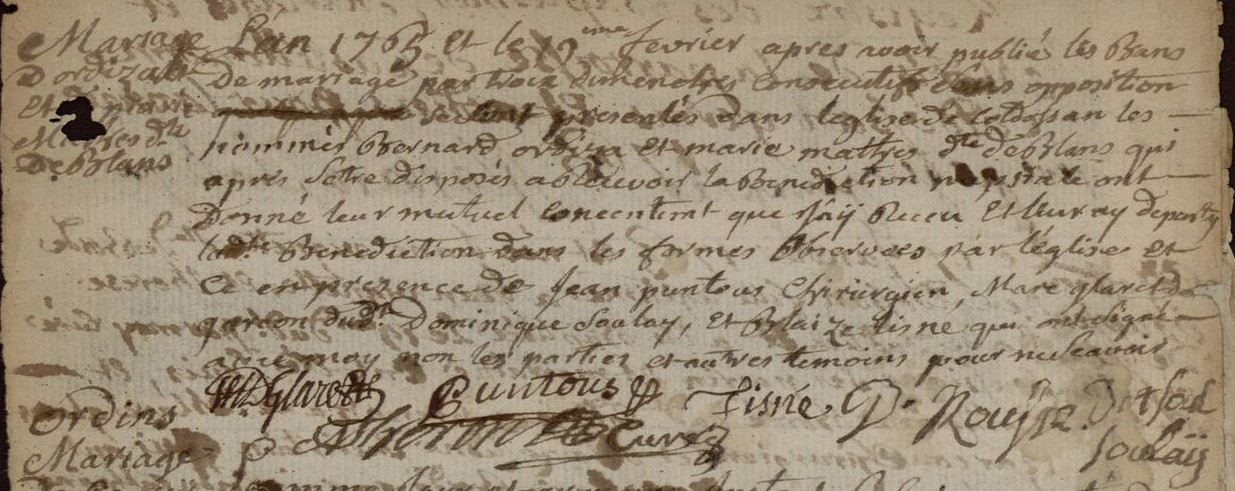 Mariage
D'ordiza
Et
Mattres dte
De Blans
L'an 1765 et le 19 ime fevrier apres avoir publié les Bans
De mariage par trois dimenches consecutifs sans opposition
se sont presentés dans l'eglise de les
nommés Bernard et marie mattres dte de Blans qui
aprés s'etre disposés a Recevoir la Benediction nuptiale ont
Donné leur mutuel concentemt que j'aÿ Receu Et leur ay departy
ladte Benediction dans les formes observees par l'église et
Ce en presence de Jean puntous Chirurgien, Marc glaret
garcon dudt Dominique Soulay, Et Blaize tisné qui ont signé
avec moy non les parties et autres temoins pour ne scavoir
Glaret Puntous Tisné
Curé
Soulaÿ
ordins
Mariage